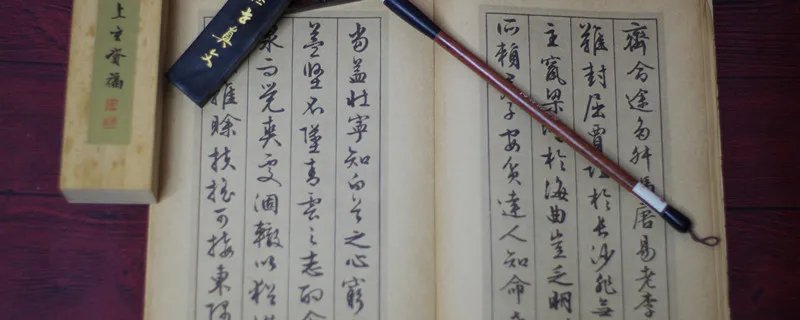 齊命途多舛馮唐易老李
難封屈賈誼於長沙非無
主竄梁鴻於海曲豈乏明
所賴君子安貧達人知命
當益壯寧知白首之心窮
益堅不墜青雲之志酌
泉而覺爽處涸轍以猶
雖賒扶搖可接東隅